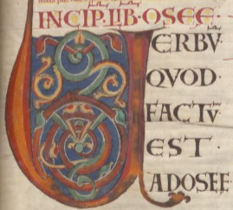 INCIP·LIB·OSEE·
VERBŪ
QVOD·
FACTŪ
EST·
ADOSEE